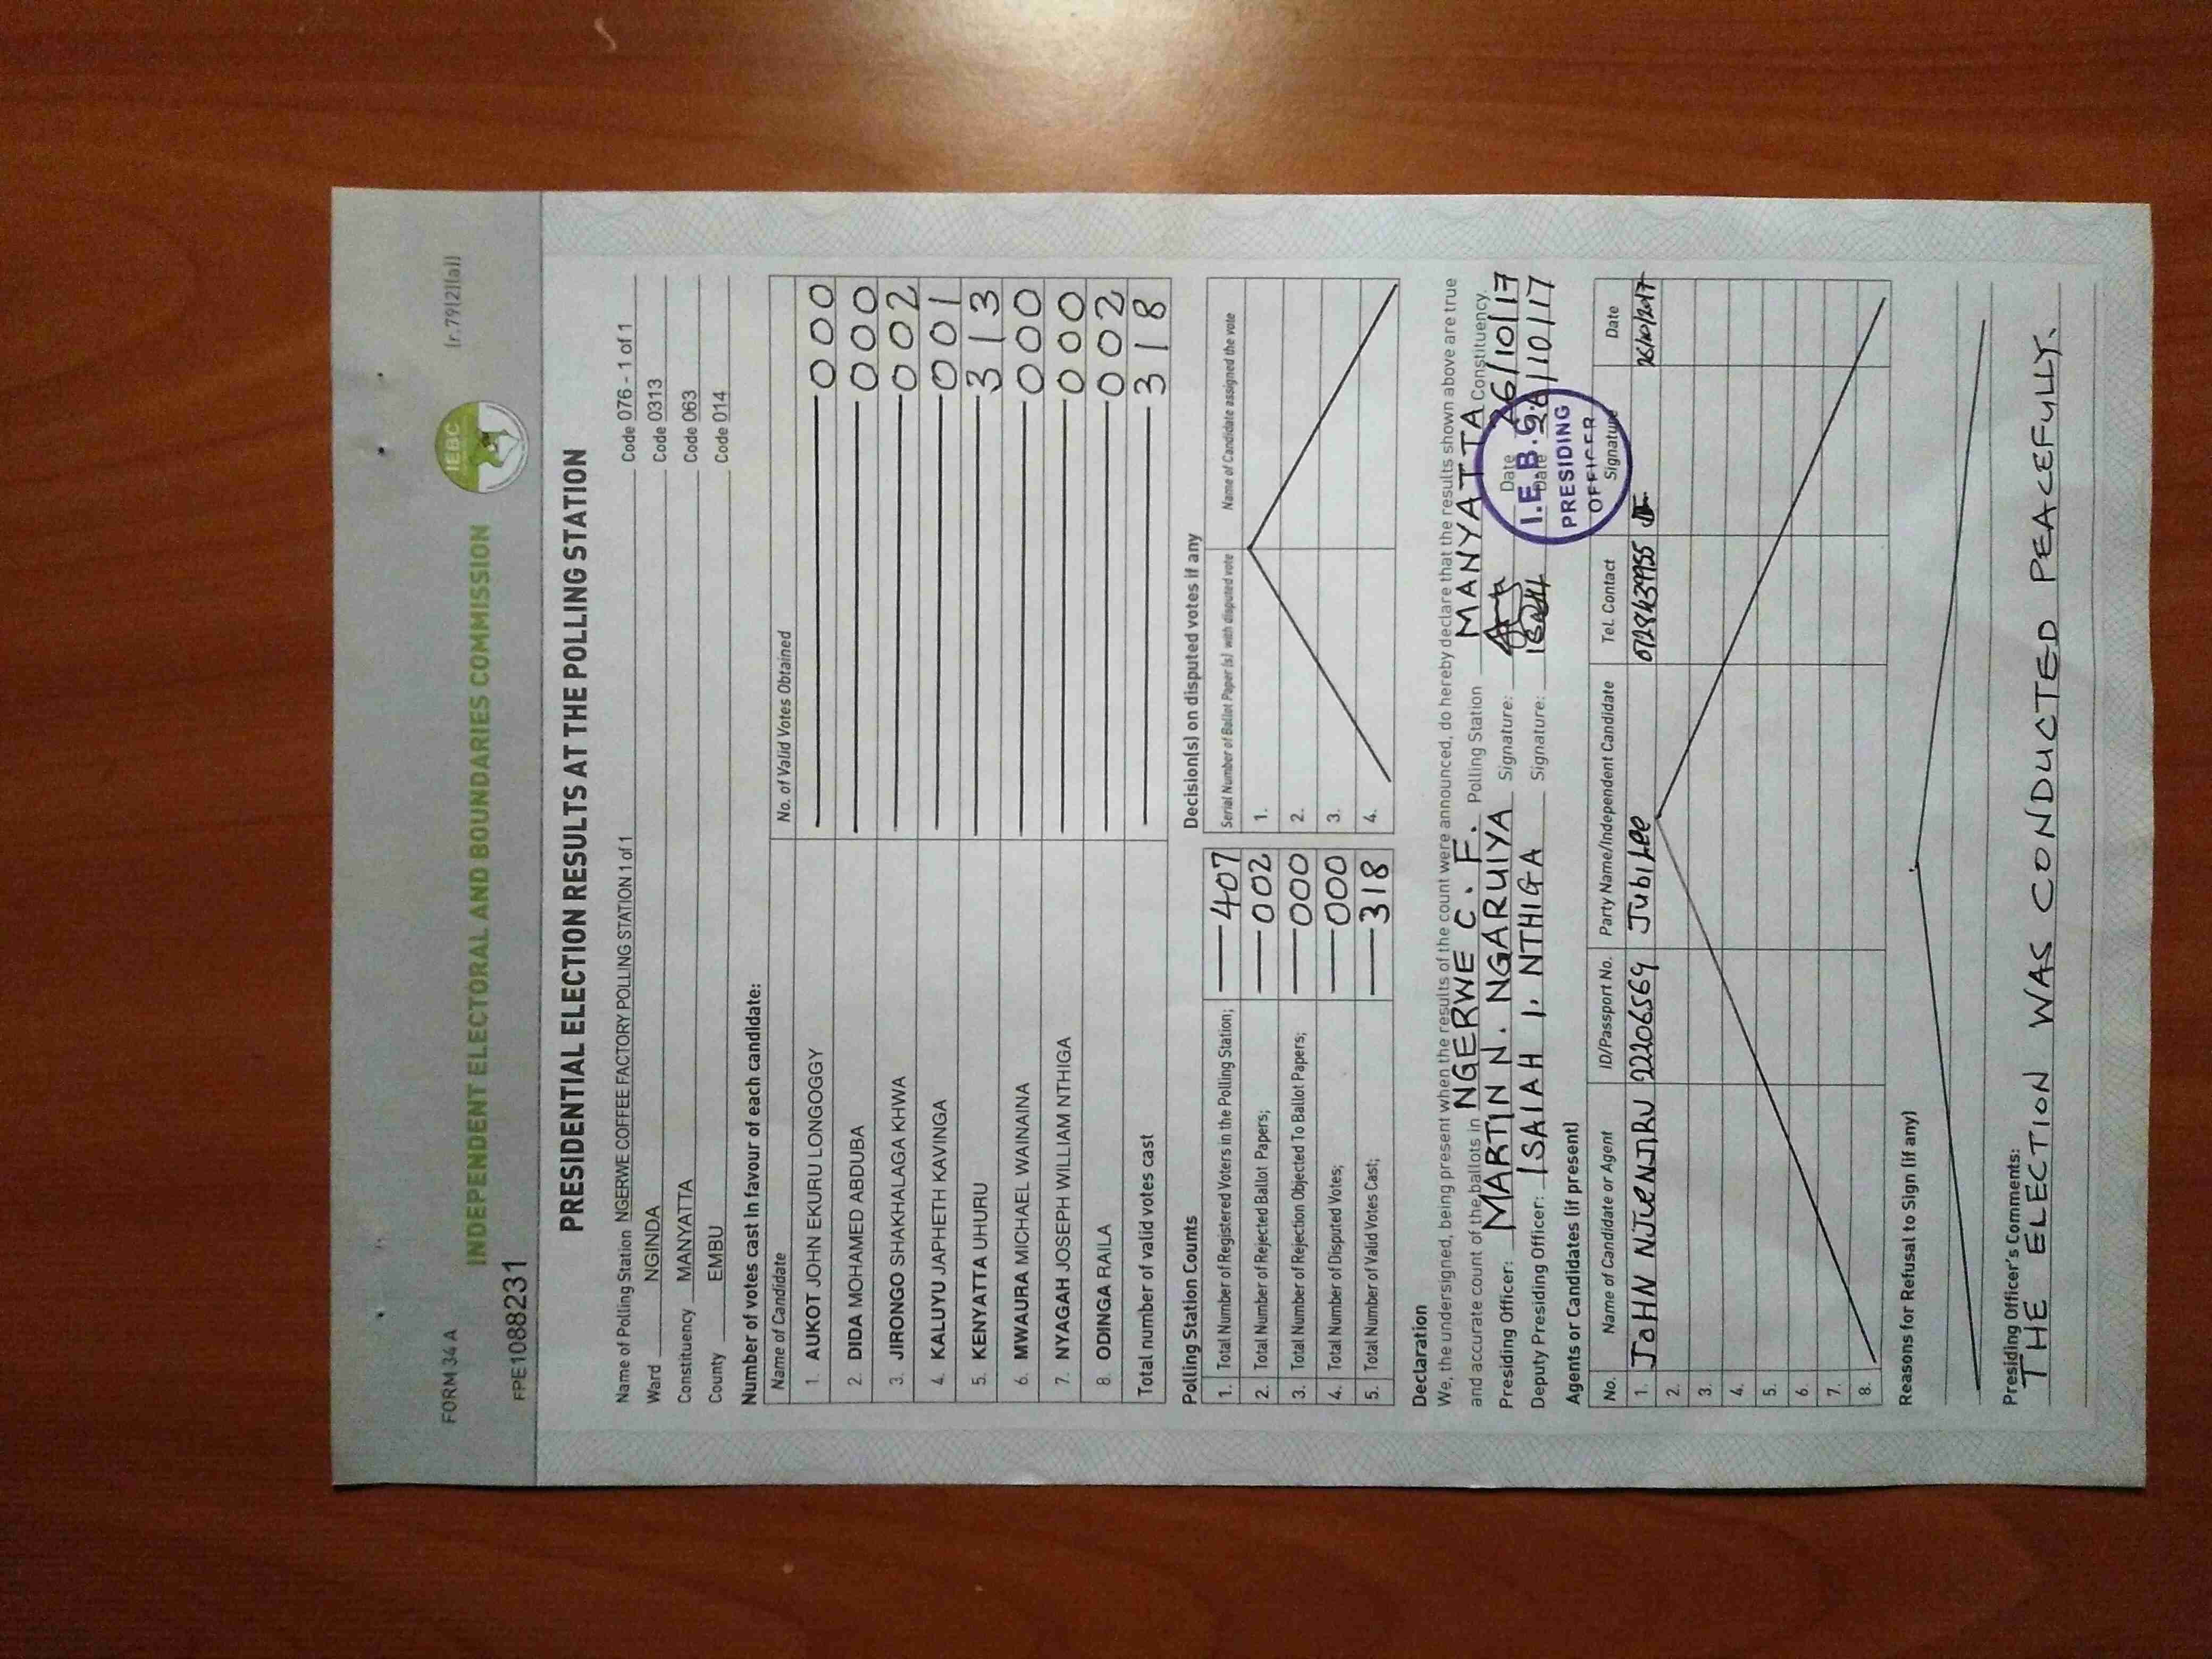 FORM 34 A
(r.79(2)(a))
INDEPENDENT ELECTORAL AND BOUNDARIES COMMISSION
IEBC
FPE1088231
PRESIDENTIAL ELECTION RESULTS AT THE POLLING STATION
Name of Polling Station NGERWE COFFEE FACTORY POLLING STATION 1 of 1 Code 076 - 1 of 1
Ward NGINDA Code 0313
Constituency MANYATTA Code 063
County EMBU Code 014
Number of votes cast in favour of each candidate:
Name of Candidate No. of Valid Votes Obtained
1. AUKOT JOHN EKURU LONGOGGY 000
2. DIDA MOHAMED ABDUBA 000
3. JIRONGO SHAKHALAGA KHWA 002
4. KALUYU JAPHETH KAVINGA 001
5. KENYATTA UHURU 313
6. MWAURA MICHAEL WAINAINA 000
7. NYAGAH JOSEPH WILLIAM NTHIGA 000
8. ODINGA RAILA 002
Total number of valid votes cast 318
Polling Station Counts
1. Total Number of Registered Voters in the Polling Station; 407
2. Total Number of Rejected Ballot Papers; 002
3. Total Number of Rejection Objected To Ballot Papers; 000
4. Total Number of Disputed Votes; 000
5. Total Number of Valid Votes Cast; 318
Decision(s) on disputed votes if any
Serial Number of Ballot Paper(s) with disputed vote Name of Candidate assigned the vote
1.
2.
3.
4.
Declaration
We, the undersigned, being present when the results of the count were announced, do hereby declare that the results shown above are true
and accurate count of the ballots in NGERWE C.F. Polling Station MANYATTA Constituency.
Presiding Officer: MARTIN N. NGARUIYA Signature: Date 26/10/17
Deputy Presiding Officer: ISAIAH I. NTHIGA Signature: Date 26/10/17
I.E.B.C.
PRESIDING
OFFICER
Agents or Candidates (if present)
No. Name of Candidate or Agent ID/Passport No. Party Name/Independent Candidate Tel. Contact Signature Date
1. JOHN NJUE NJIRU 22206569 Jubilee 26/10/2017
2.
3.
4.
5.
6.
7.
8.
Reasons for Refusal to Sign (if any)
Presiding Officer's Comments:
THE ELECTION WAS CONDUCTED PEACEFULLY.